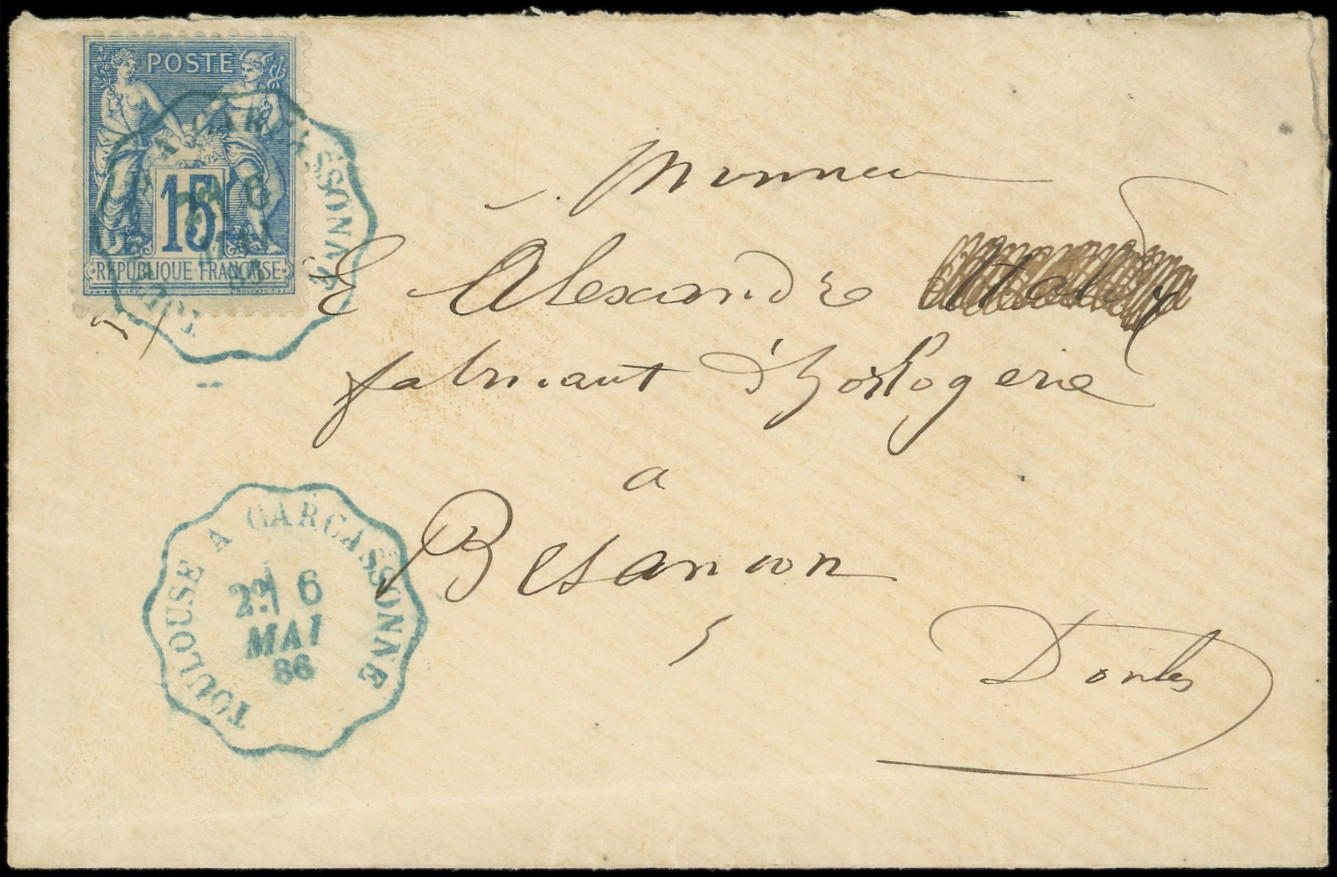 POSTE
15
RÉPUBLIQUE FRANÇAISE
TOULOUSE A CARCASSONNE
6
MAI
86
Monsieur
E Alexandre
fabricant d'horlogerie
a
Besancon
Doubs
TOULOUSE A CARCASSONNE
2º 6
MAI
86